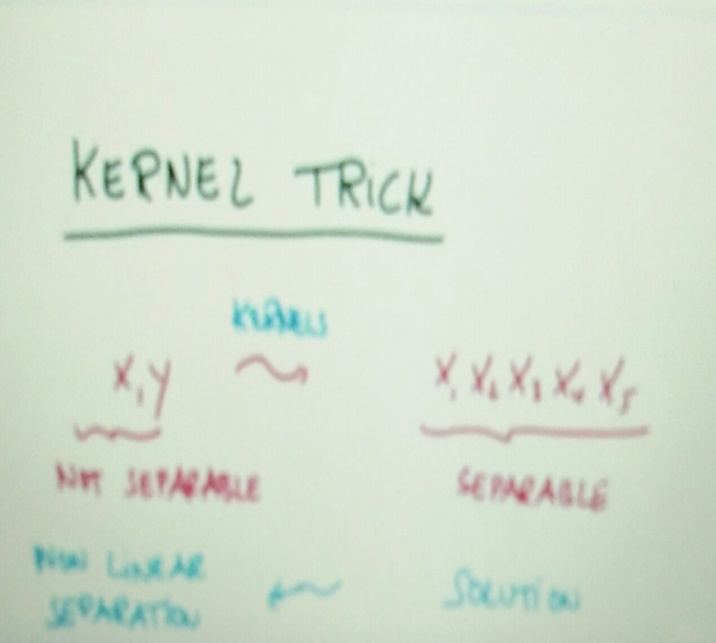 KERNEL TRICK
KERNELS
X, Y
X₁ X₂ X₃ X₄ X₅
NOT SEPARABLE
SEPARABLE
NON LINEAR
SEPARATION
SOLUTION